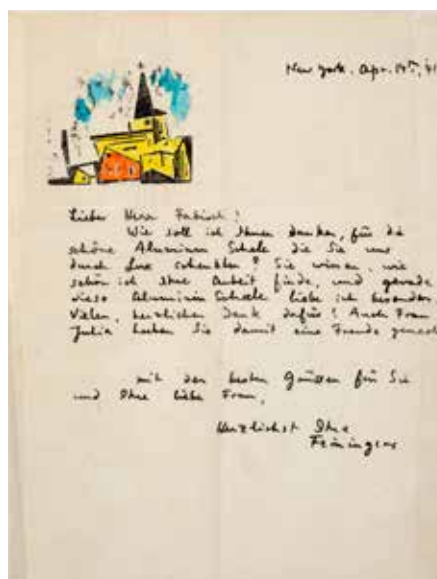 New York. Apr. 14th, '41
Lieber Herr Fabisch!
Wie soll ich Ihnen danken, für die
schöne Aluminium Schale die Sie uns
durch Lux schenkten? Sie wissen, wie
schön ich Ihre Arbeit finde, und gerade
diese Aluminium Schale liebe ich besonders
Vielen, herzlichen Dank dafür! Auch Frau
Julia haben Sie damit eine Freude gemacht
mit den besten Grüssen für Sie
und Ihre liebe Frau,
Herzlichst Ihr
Feininger